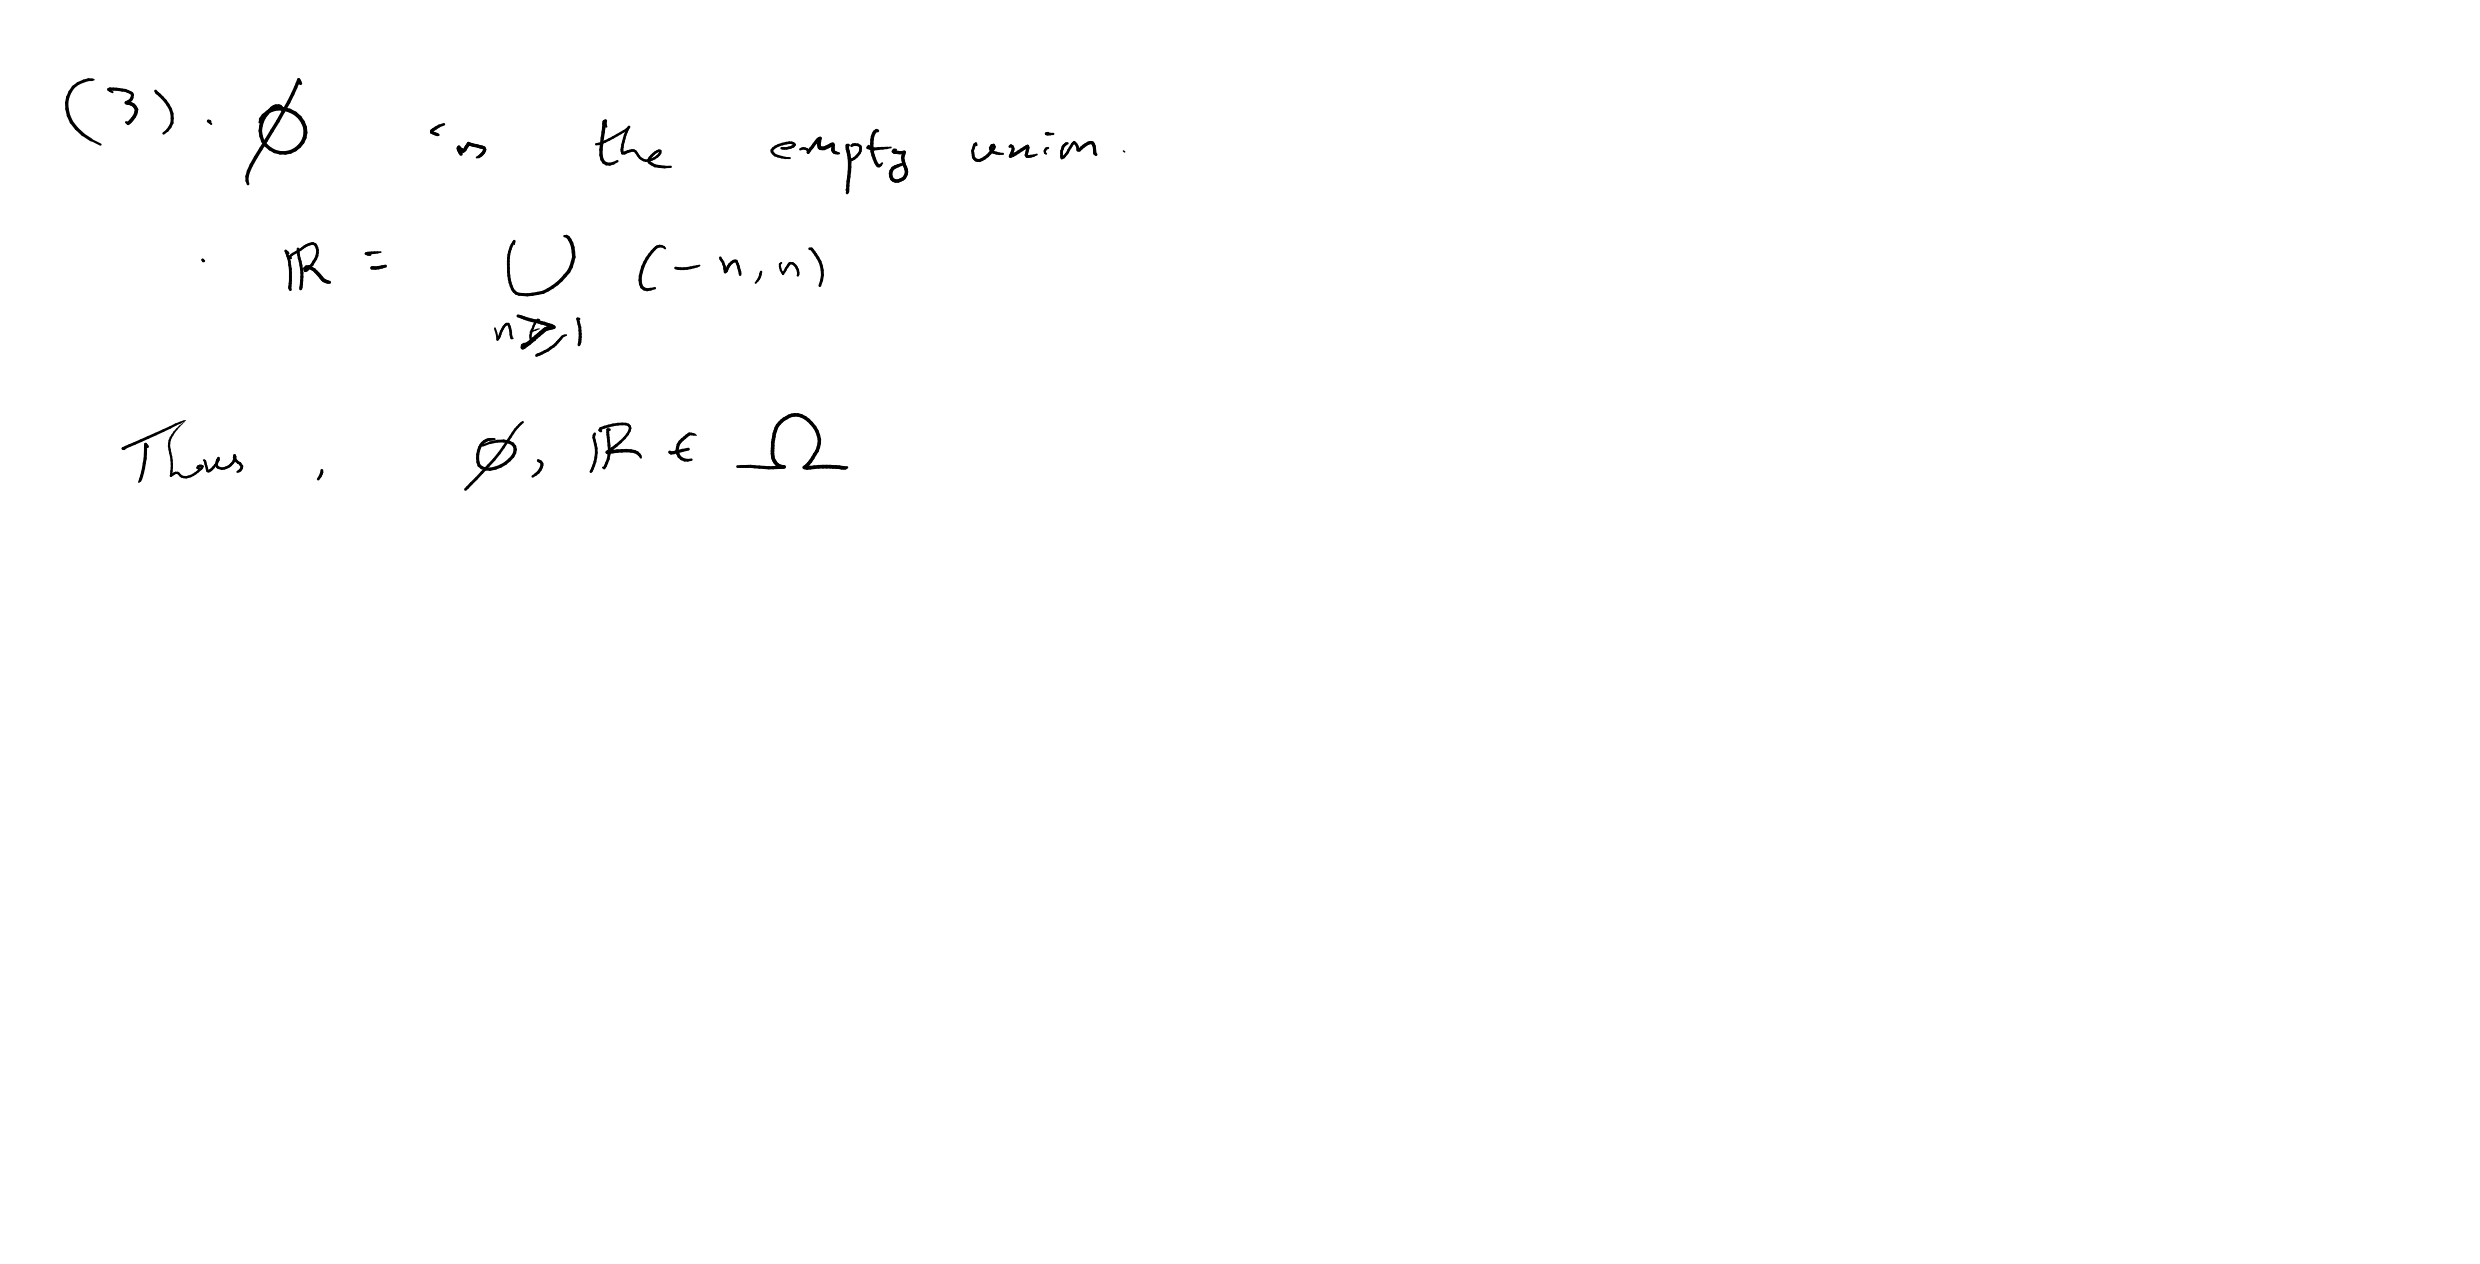 (3). ∅ is the empty union.
· ℝ = ⋃ (-n, n)
n⩾1
Thus, ∅, ℝ ∈ Ω